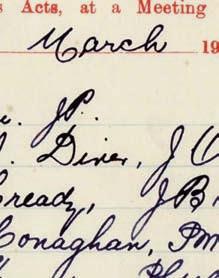 s Acts, at a Meeting
March 19
r. JP.
. Diver, J
Cready, JB
Conaghan, PM